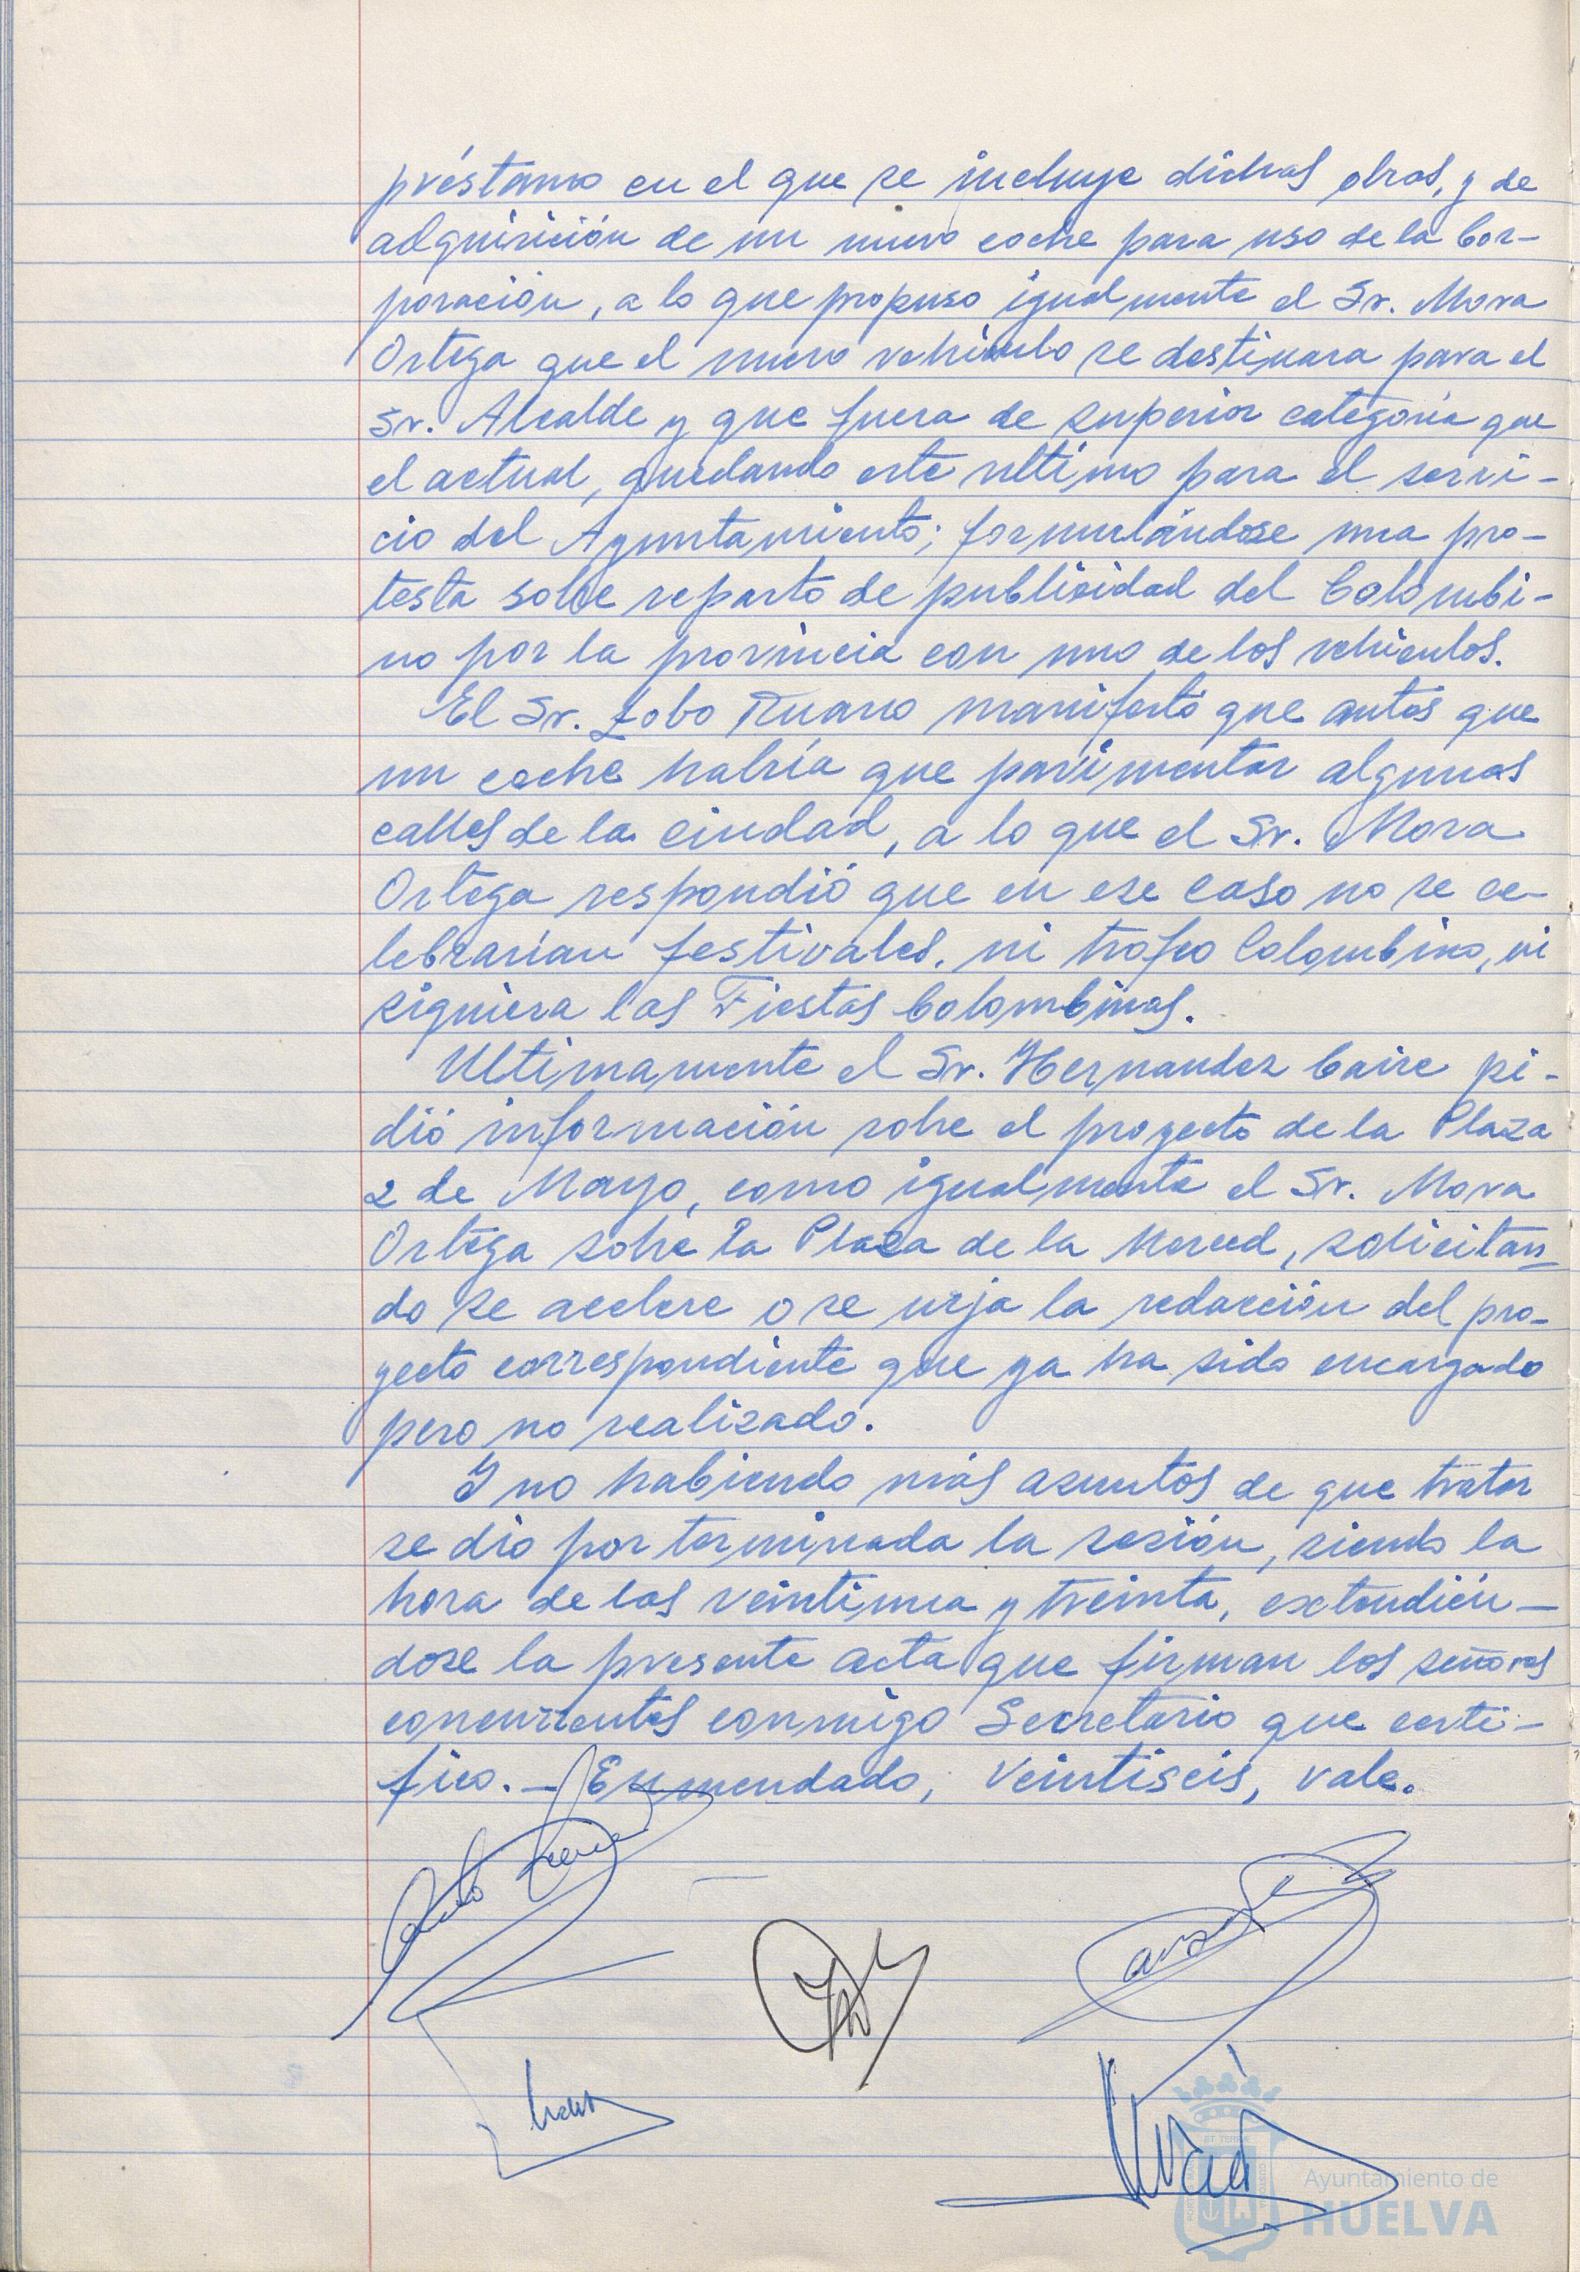 préstamo en el que se incluye dichas obras, y de
adquisición de un nuevo coche para uso de la Cor-
poración, a lo que propuso igualmente el Sr. Mora
Ortega que el nuevo vehículo se destinara para el
Sr. Alcalde y que fuera de superior categoría que
el actual, quedando este ultimo para el servi-
cio del Ayuntamiento; formulándose una pro-
testa sobre reparto de publicidad del Colombi-
no por la provincia con uno de los vehiculos.
El Sr. Lobo Ruano manifestó que antes que
un coche habría que pavimentar algunas
calles de la ciudad, a lo que el Sr. Mora
Ortega respondió que en ese caso no se ce-
lebrarían festivales, ni trofeo Colombino, ni
siquiera las Fiestas Colombinas.
Ultimamente el Sr. Hernandez Caire pi-
dió información sobre el proyecto de la Plaza
2 de Mayo, como igualmente el Sr. Mora
Ortega sobre la Plaza de la Merced, solicitan-
do se acelere o se urja la redacción del pro-
yecto correspondiente que ya ha sido encargado
pero no realizado.
Y no habiendo más asuntos de que tratar
se dio por terminada la sesión, siendo la
hora de las veintiuna y treinta, extendién-
dose la presente acta que firman los señores
concurrentes conmigo Secretario que certi-
fico. – Enmendado, veintiseis, vale.
Ayuntamiento de
HUELVA